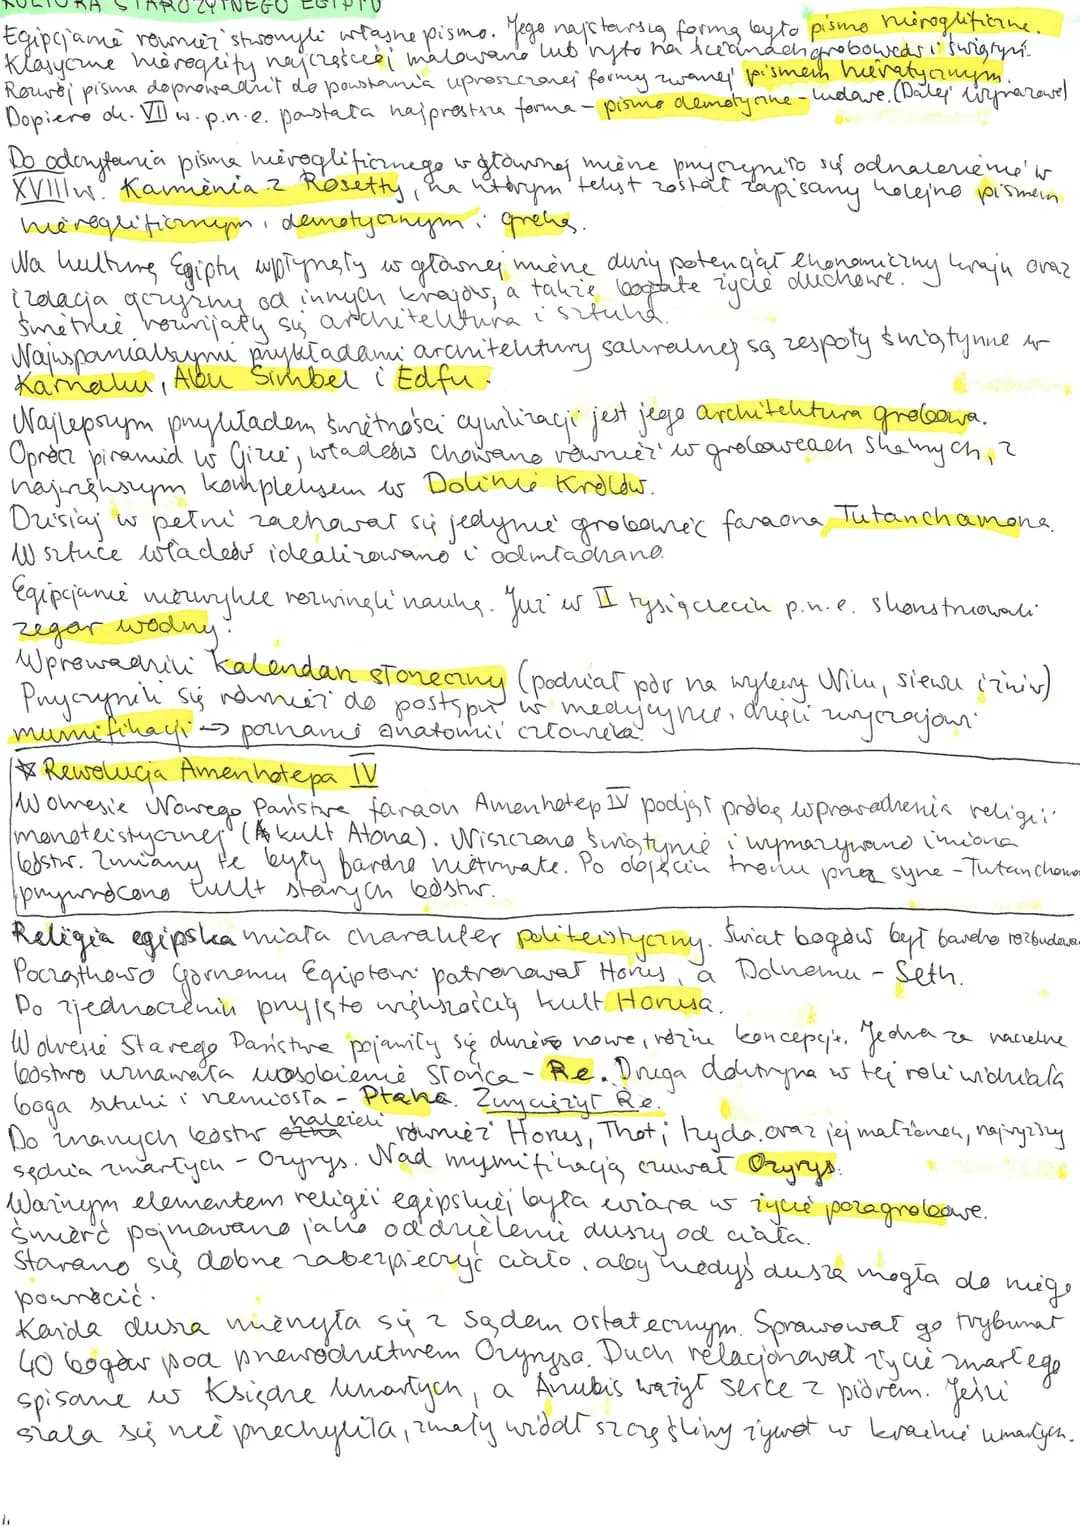 KULTURA STAROŻYTNEGO EGIPTU
Egipcjanie również stworzyli własne pismo. Jego najstarszą formą było pismo hieroglificzne.
Klasyczne hieroglify najczęściej malowano lub ryto na ścianach grobowców i świątyń.
Rozwój pisma doprowadził do powstania uproszczonej formy zwanej pismem hieratycznym.
Dopiero ok. VII w. p.n.e. powstała najprostsza forma - pismo demotyczne - ludowe. (Dalej wyrazowe)
Do odczytania pisma hieroglificznego w głównej mierze przyczyniło się odnalezienie w
XVIII w. Kamienia z Rosetty, na którym tekst został zapisany kolejno pismem
hieroglificznym, demotycznym i greką.
Na kulturę Egiptu wpłynęły w głównej mierze duży potencjał ekonomiczny kraju oraz
izolacja ojczyzny od innych krajów, a także bogate życie duchowe.
Świetnie rozwijały się architektura i sztuka.
Najwspanialszymi przykładami architektury sakralnej są zespoły świątynne w
Karnaku, Abu Simbel i Edfu.
Najlepszym przykładem świetności cywilizacji jest jego architektura grobowa.
Oprócz piramid w Gizie, władców chowano również w grobowcach skalnych, z
największym kompleksem w Dolinie Królów.
Dzisiaj w pełni zachował się jedynie grobowiec faraona Tutanchamona.
W sztuce władców idealizowano i odmładzano.
Egipcjanie niezwykle rozwinęli naukę. Już w II tysiącleciu p.n.e. skonstruowali
zegar wodny.
Wprowadzili kalendarz słoneczny (podział pór na wylewy Nilu, siewu i żniw)
Przyczynili się również do postępu w medycynie, dzięki zwyczajowi
mumifikacji → poznanie anatomii człowieka.
☆ Rewolucja Amenhotepa IV
W okresie Nowego Państwa faraon Amenhotep IV podjął próbę wprowadzenia religii
monoteistycznej (kult Atona). Niszczono świątynie i wymazywano imiona
bóstw. Zmiany te były bardzo nietrwałe. Po objęciu tronu przez syna - Tutanchamo
przywrócono kult starych bóstw.
Religia egipska miała charakter politeistyczny. Świat bogów był bardzo rozbudowa
Początkowo Górnemu Egiptowi patronował Horus, a Dolnemu - Seth.
Po zjednoczeniu przyjęto większością kult Horusa.
W okresie Starego Państwa pojawiły się dwie nowe, różne koncepcje. Jedna za naczelne
bóstwo uznawała uosobienie Słońca - Re. Druga doktryna w tej roli widziała
boga sztuki i rzemiosła - Ptaha. Zwyciężył Re.
Do znanych bóstw należeli również Horus, Thot i Izyda oraz jej małżonek, najwyższy
sędzia zmarłych - Ozyrys. Nad mymifikacją czuwał Ozyrys.
Ważnym elementem religii egipskiej była wiara w życie pozagrobowe.
Śmierć pojmowano jako oddzielenie duszy od ciała.
Starano się dobrze zabezpieczyć ciało, aby kiedyś dusza mogła do niego
powrócić.
Każda dusza mierzyła się z sądem ostatecznym. Sprawował go trybunał
40 bogów pod przewodnictwem Ozyrysa. Duch relacjonował życie zmarłego
spisane w Księdze Umarłych, a Anubis ważył serce z piórem. Jeśli
szala się nie przechyliła, zmarły wiódł szczęśliwy żywot w krainie umarłych.